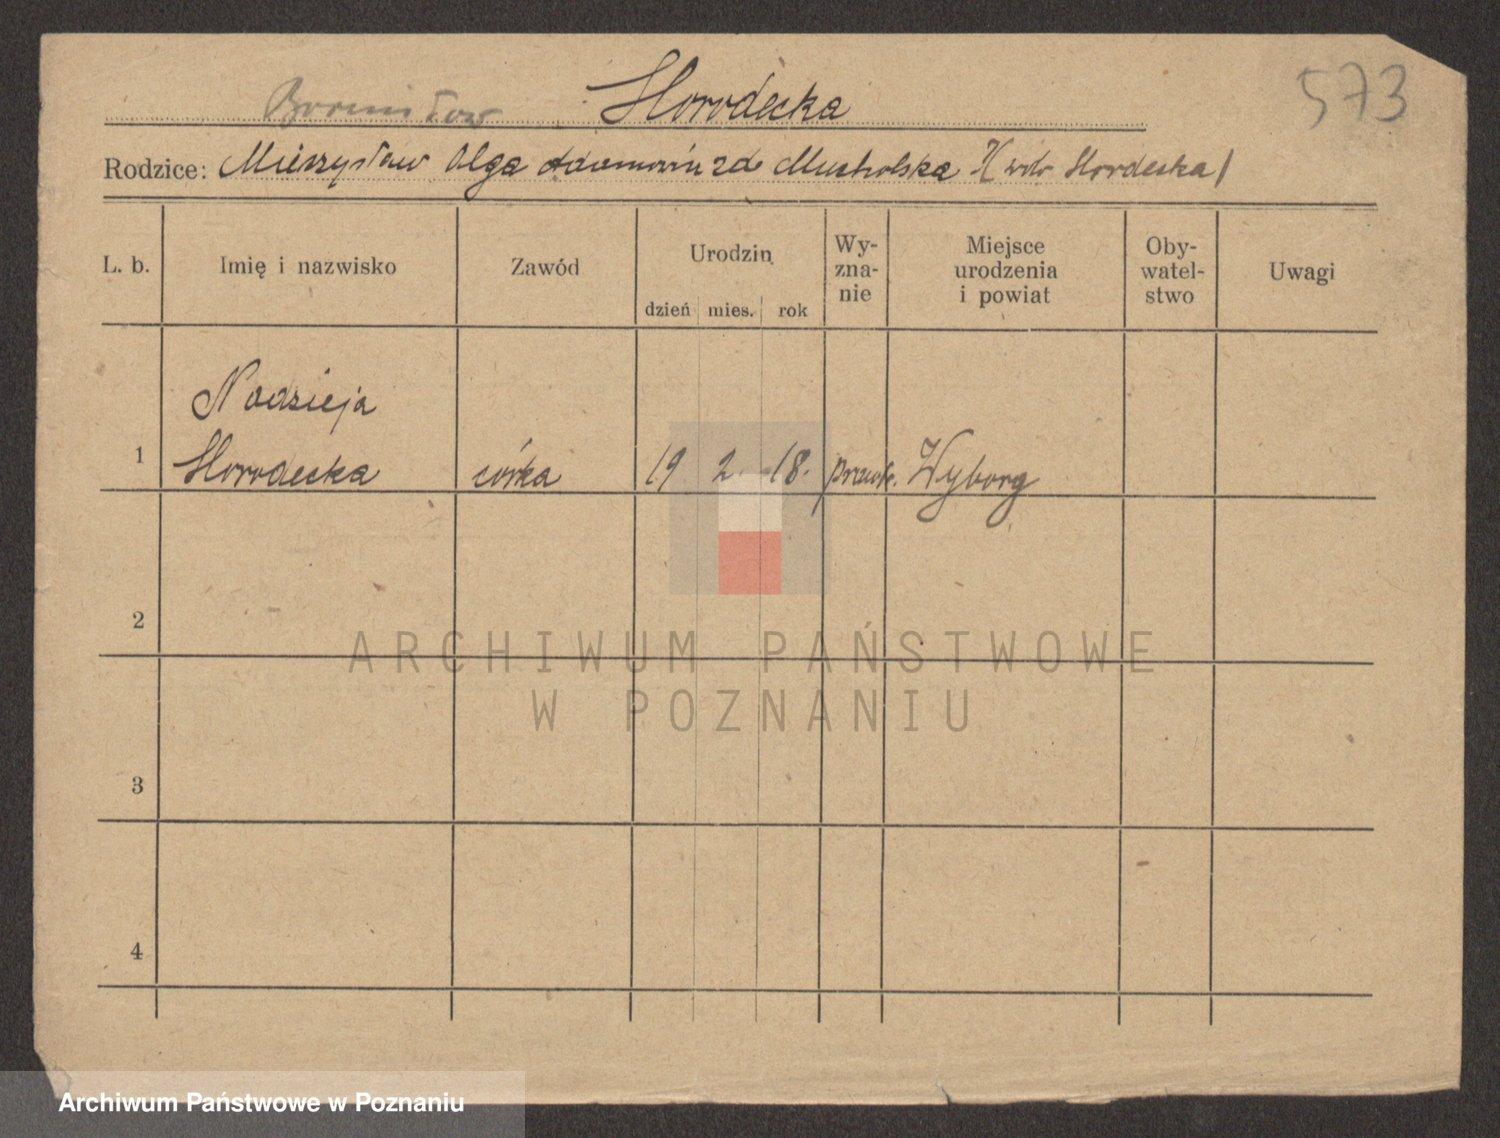 Horodecka
573
Rodzice: Mieczysław Olga Muchalska Horodecka
L. b. Imię i nazwisko Zawód Urodzin dzień mies. rok Wy-
zna-
nie Miejsce
urodzenia
i powiat Oby-
watel-
stwo Uwagi
Nadzieja
1 Horodecka córka 19 2 18. prawosł. Wyborg
2
ARCHIWUM PAŃSTWOWE
W POZNANIU
3
4
Archiwum Państwowe w Poznaniu